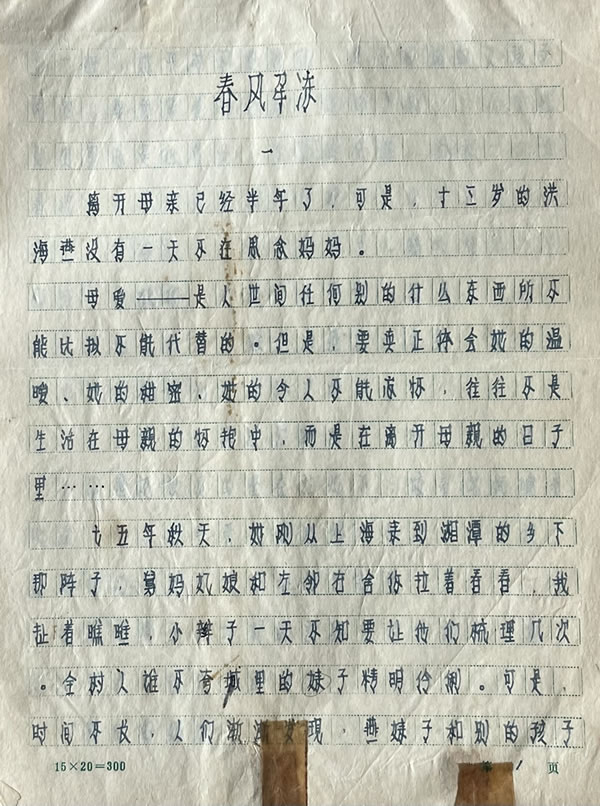 春风
一
离开母亲已经半年了，可是，十三岁的洪
海燕没有一天不在思念妈妈。
母爱——是人世间任何别的什么东西所不
能比拟不能代替的。但是，要真正体会她的温
暖、她的甜密、她的令人不能忘怀，往往不是
生活在母親的怀抱中，而是在离开母親的日子
里……
七五年秋天，她刚从上海来到湘潭的乡下
那阵子，舅妈姨娘和左邻右舍你拉着看看，我
扯着瞧瞧，小辫子一天不知要让他们梳理几次
。全村人谁不夸城里的妹子精明伶俐。可是，
时间不长，人们渐渐发现，燕妹子和别的孩子
15×20=300
第 1 页